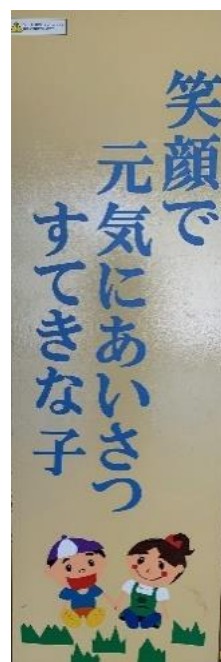 笑顔で
元気にあいさつ
すてきな子